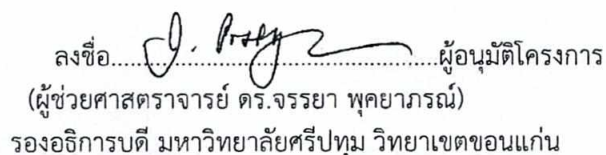 ลงชื่อ.......................................................ผู้อนุมัติโครงการ
(ผู้ช่วยศาสตราจารย์ ดร.จรรยา พุคยาภรณ์)
รองอธิการบดี มหาวิทยาลัยศรีปทุม วิทยาเขตขอนแก่น